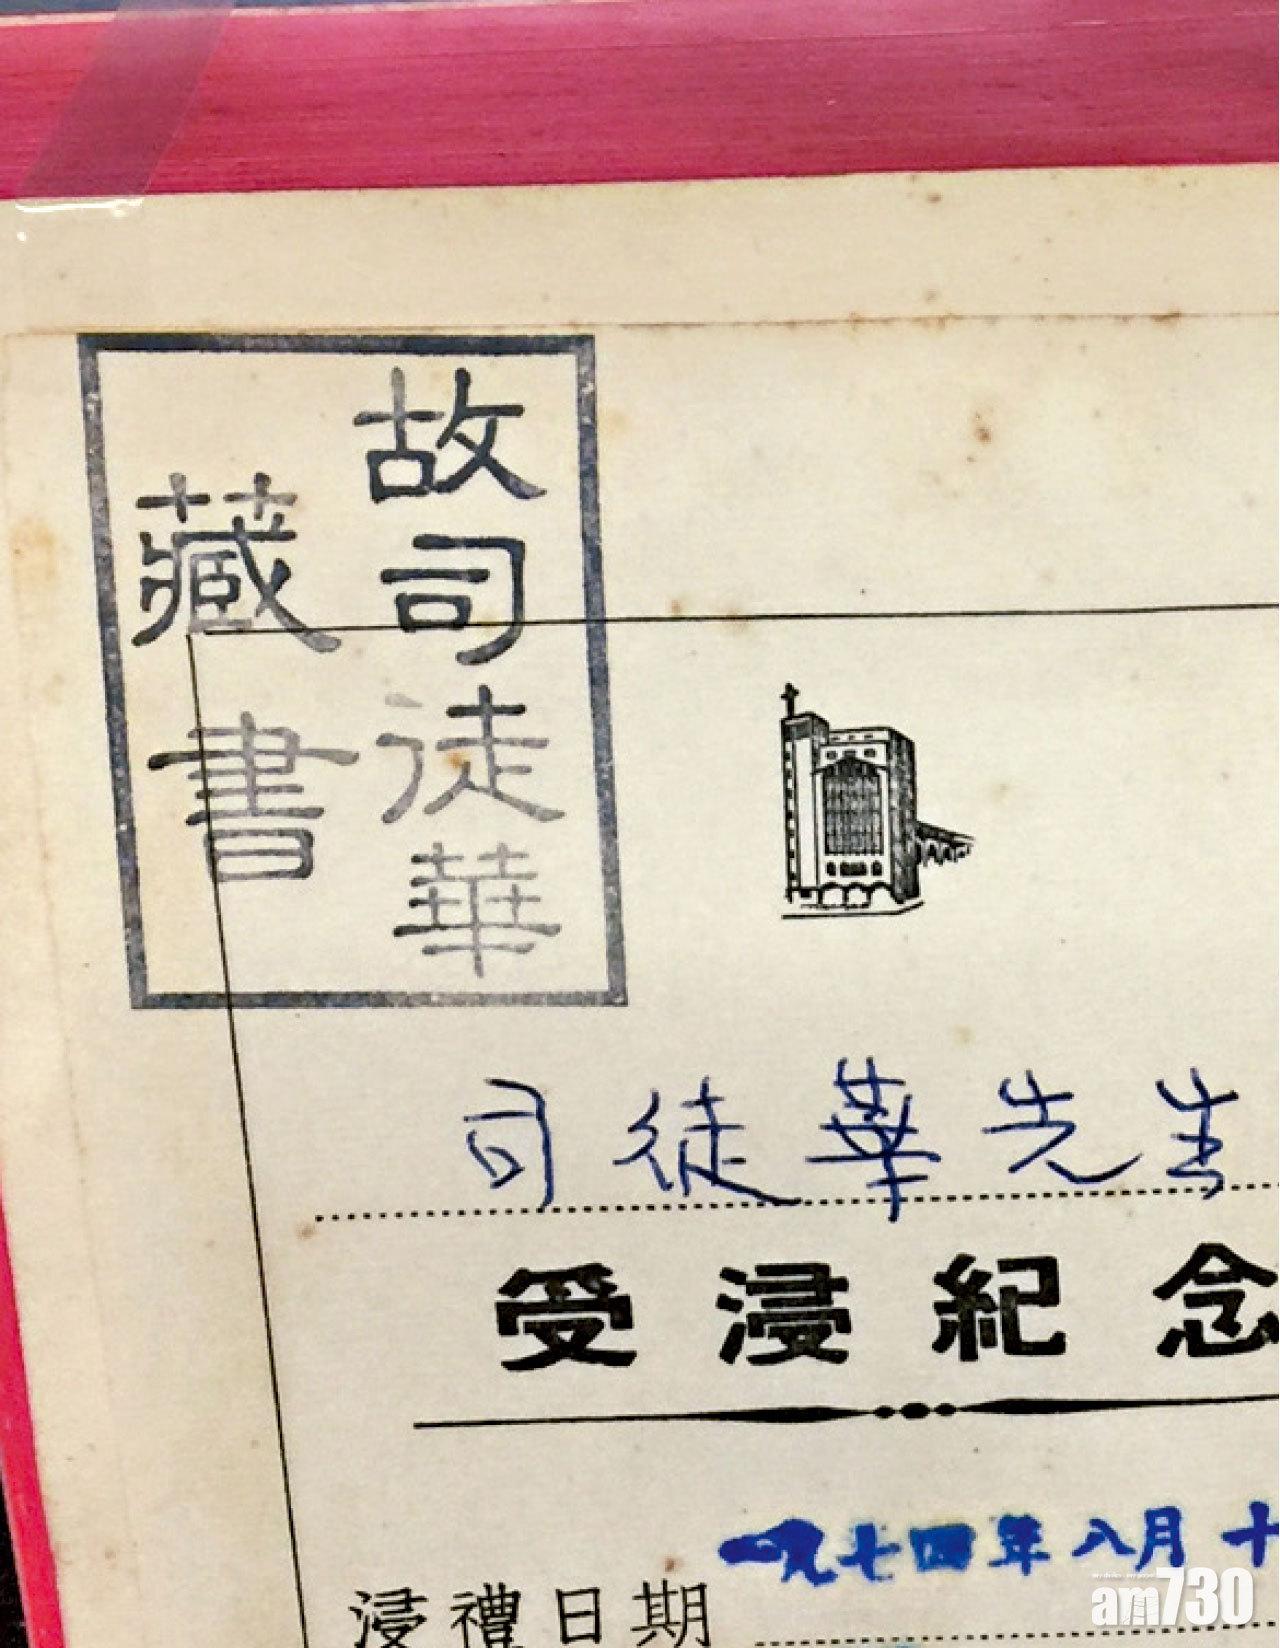 故司徒華
藏書
司徒華先生
受浸紀念
一九七四年八月十
浸禮日期
am730